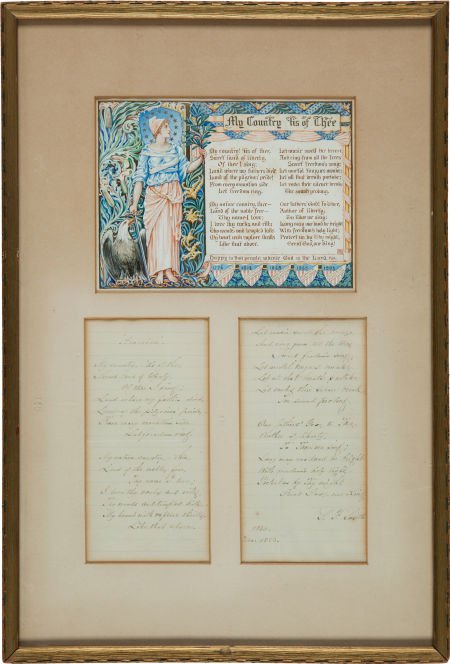 My Country 'tis of Thee
My country! 'tis of thee,
Sweet land of liberty,
Of thee I sing;
Land where my fathers died
Land of the pilgrims' pride
From every mountain side
Let freedom ring.
My native country, thee—
Land of the noble free—
Thy name I love;
I love thy rocks and rills,
Thy woods and templed hills
My heart with rapture thrills
Like that above.
Let music swell the breeze
And ring from all the trees
Sweet freedom's song;
Let mortal tongues awake;
Let all that breathe partake;
Let rocks their silence break
The sound prolong.
Our fathers' God! to Thee,
Author of liberty,
To Thee we sing;
Long may our land be bright
With freedom's holy light,
Protect us by Thy might
Great God, our King!
that people, whose God is the Lord.
1776
America.
My country, 'tis of thee
Sweet land of liberty,
Of thee I sing;
Land where my fathers died,
Land of the pilgrims' pride,
From every mountain side
Let freedom ring.
My native country, thee
Land of the noble free,
Thy name I love;
I love thy rocks and rills,
Thy woods and templed hills
My heart with rapture thrills
Like that above.
Let music swell the breeze
And ring from all the trees
Sweet freedom's song;
Let mortal tongues awake;
Let all that breathe partake
Let rocks their silence break
The sound prolong.
Our fathers' God, to Thee
Author of liberty,
To Thee we sing;
Long may our land be bright
With freedom's holy light
Protect us by Thy might
Great God, our King
S. F. Smith